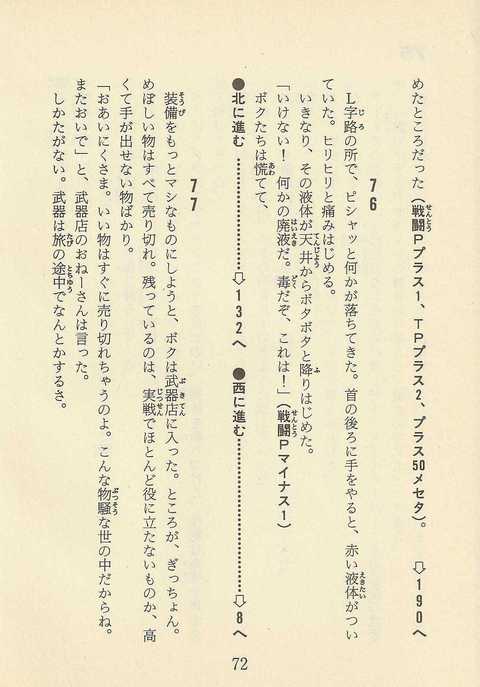 めたところだった（戦闘Pプラス1、TPプラス2、プラス50メセタ）。　⇩190へ
76
L字路の所で、ピシャッと何かが落ちてきた。首の後ろに手をやると、赤い液体がつい
ていた。ヒリヒリと痛みはじめる。
いきなり、その液体が天井からボタボタと降りはじめた。
「いけない！　何かの廃液だ。毒だぞ、これは！」（戦闘Pマイナス1）
ボクたちは慌てて、
●北に進む…………⇩132へ　●西に進む…………⇩8へ
77
装備をもっとマシなものにしようと、ボクは武器店に入った。ところが、ぎっちょん。
めぼしい物はすべて売り切れ。残っているのは、実戦でほとんど役に立たないものか、高
くて手が出せない物ばかり。
「おあいにくさま。いい物はすぐに売り切れちゃうのよ。こんな物騒な世の中だからね。
またおいで」と、武器店のおねーさんは言った。
しかたがない。武器は旅の途中でなんとかするさ。
72